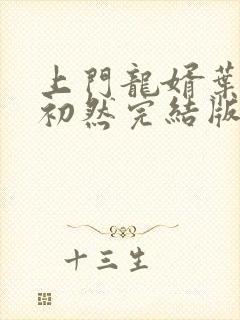 上門龍婿葉
初然完結版
十三生